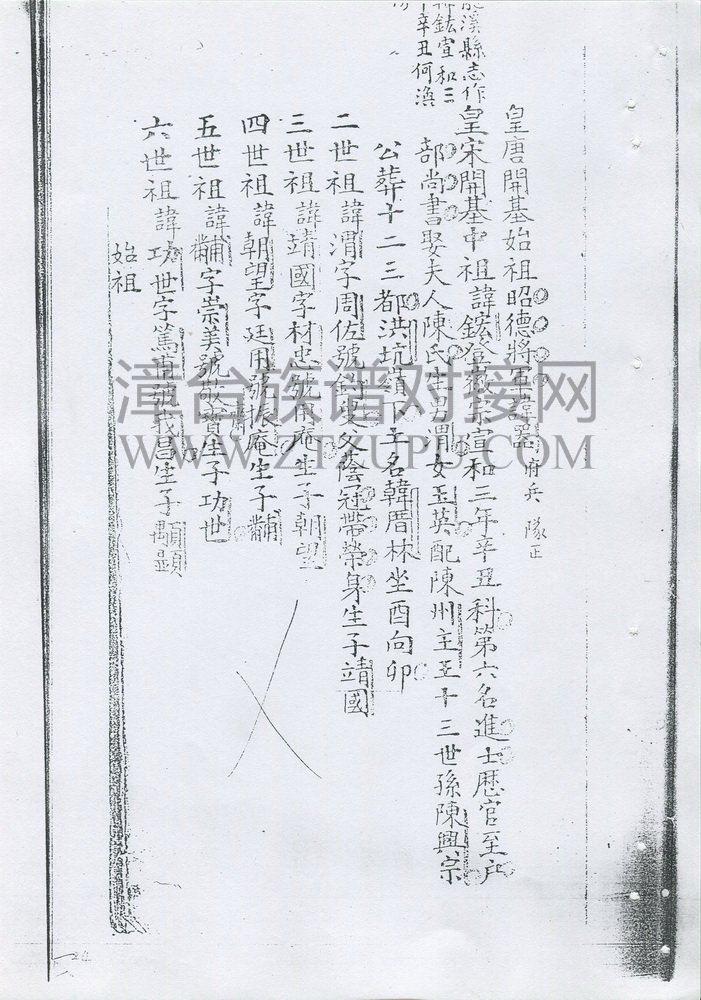 龍溪縣志作
鋐宣和三
年辛丑何渙
皇唐開基始祖昭德將軍諱器 府兵 隊正
皇宋開基中祖諱鋐登徽宗宣和三年辛丑科第六名進士歷官至户
部尚書娶夫人陳氏生男渭女玉英配陳州主至十三世孫陳興宗
公葬十二三都洪坑嶺下土名韓厝林坐酉向卯
二世祖諱渭字周佐號 父蔭冠帶榮身生子靖國
三世祖諱靖國字材忠號 庵生子朝望
四世祖諱朝望字廷用號振庵生子黼
五世祖諱黼字崇美號敬 生子功世
六世祖諱功世字篤 號 昌生子顒顯
始祖
漳台族谱对接网
WWW.ZTZUPU.COM